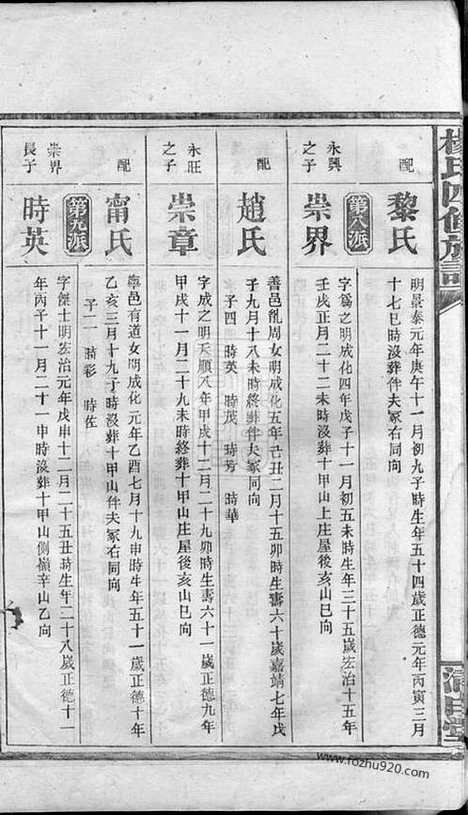 楊氏四修族譜
清白堂
配
黎氏
明景泰元年庚午十一月初九子時生年五十四歲正德元年丙寅三月
十七巳時沒葬伴夫冢右同向
第八派
永興
之子
崇界
字錫之明成化四年戊子十一月初五未時生年三十五歲宏治十五年
壬戌正月二十二未時沒葬十甲山上庄屋後亥山巳向
配
趙氏
善邑亂周女明成化五年己丑二月十五卯時生壽六十歲嘉靖七年戊
子九月十八未時終葬伴夫冢同向
子四 時英 時茂 時芳 時華
永旺
之子
崇章
字成之明天順八年甲戌十二月二十九卯時生壽六十一歲正德九年
甲戌十一月二十九未時終葬十甲山庄屋後亥山巳向
配
甯氏
寧邑有道女明成化元年乙酉七月十九申時生年五十一歲正德十年
乙亥三月十九丁時沒葬十甲山伴夫冢右同向
子二 時彩 時佐
第九派
崇界
長子
時英
字傑士明宏治元年戊申十二月二十五丑時生年二十八歲正德十一
年丙子十一月二十一申時沒葬十甲山側嶺辛山乙向
www.fozhu920.com